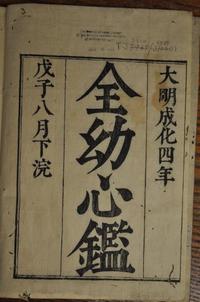 大明成化四年
全幼心鑑
戊子八月下浣